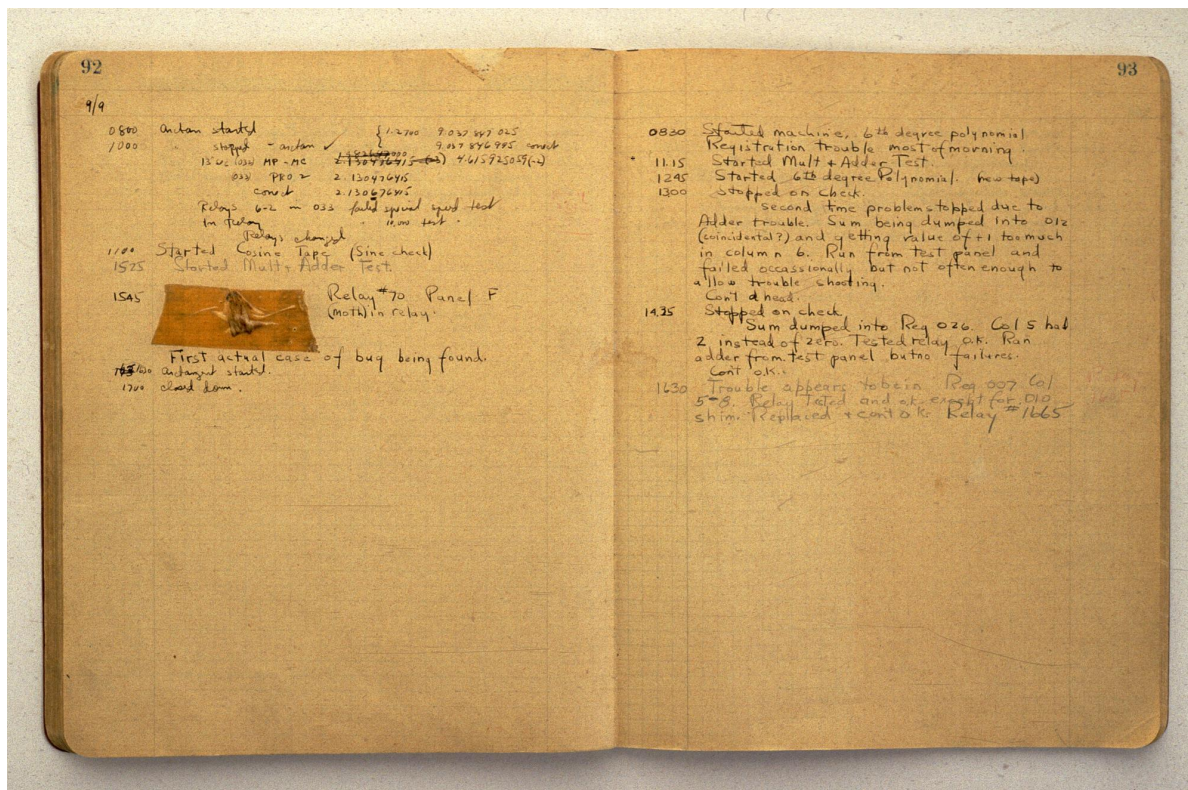 92
9/9
0800 arctan started { 1.2700 9.037 847 025
1000 " stopped - arctan ✓ 9.037 846 995 correct
13"uc (033) MP - MC 2.130476415 4.615925059(-2)
033 PRO 2 2.130476415
correct 2.130676415
Relays 6-2 in 033 failed special speed test
In Relay 10,000 test.
Relays changed
1100 Started Cosine Tape (Sine check)
1525 Started Mult+Adder Test.
1545 Relay #70 Panel F
(moth) in relay.
First actual case of bug being found.
1630 arctangent started.
1700 closed down.
93
0830 Started machine, 6th degree polynomial
Registration trouble most of morning.
11.15 Started Mult + Adder Test.
1245 Started 6th degree Polynomial. (new tape)
1300 Stopped on check.
Second time problem stopped due to
Adder trouble. Sum being dumped into 012
(coincidental?) and getting value of +1 too much
in column 6. Run from test panel and
failed occassionally but not often enough to
allow trouble shooting.
Con't ahead.
14.35 Stopped on check
Sum dumped into Reg 026. Col 5 had
2 instead of zero. Tested relay o.k. Ran
adder from test panel but no failures.
Con't o.k.
1630 Trouble appears to be in Reg 007 Col
5-8. Relay Tested and ok except for
shim. Replaced + cont ok. Relay #1665